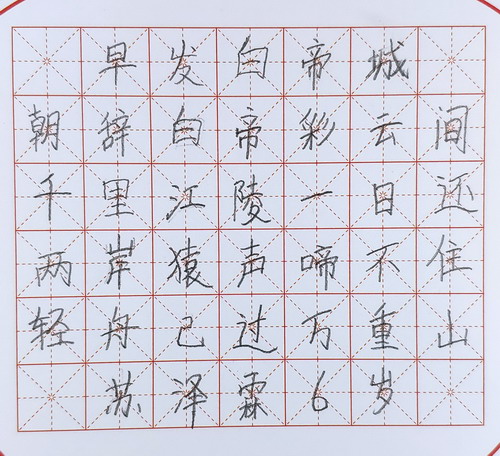 早发白帝城
朝辞白帝彩云间
千里江陵一日还
两岸猿声啼不住
轻舟已过万重山
苏泽霖6岁